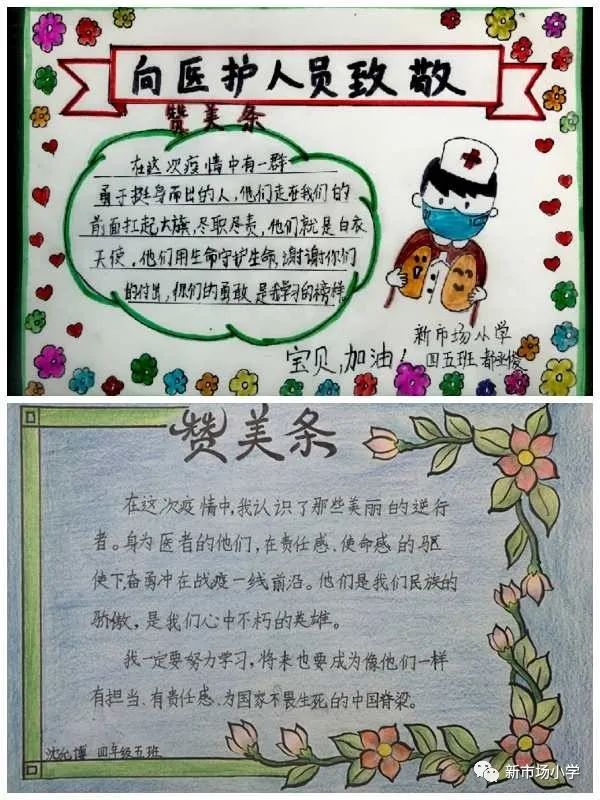 向医护人员致敬
赞美条
在这次疫情中有一群
勇于挺身而出的人，他们走在我们的
前面扛起大旗，尽职尽责，他们就是白衣
天使，他们用生命守护生命，谢谢你们
的付出，你们的勇敢是我学习的榜样。
宝贝，加油！
新市场小学
四五班
赞美条
在这次疫情中，我认识了那些美丽的逆行
者。身为医者的他们，在责任感、使命感的驱
使下，奋勇冲在战疫一线前沿。他们是我们民族的
骄傲，是我们心中不朽的英雄。
我一定要努力学习，将来也要成为像他们一样
有担当、有责任感、为国家不畏生死的中国脊梁。
四年级五班
新市场小学